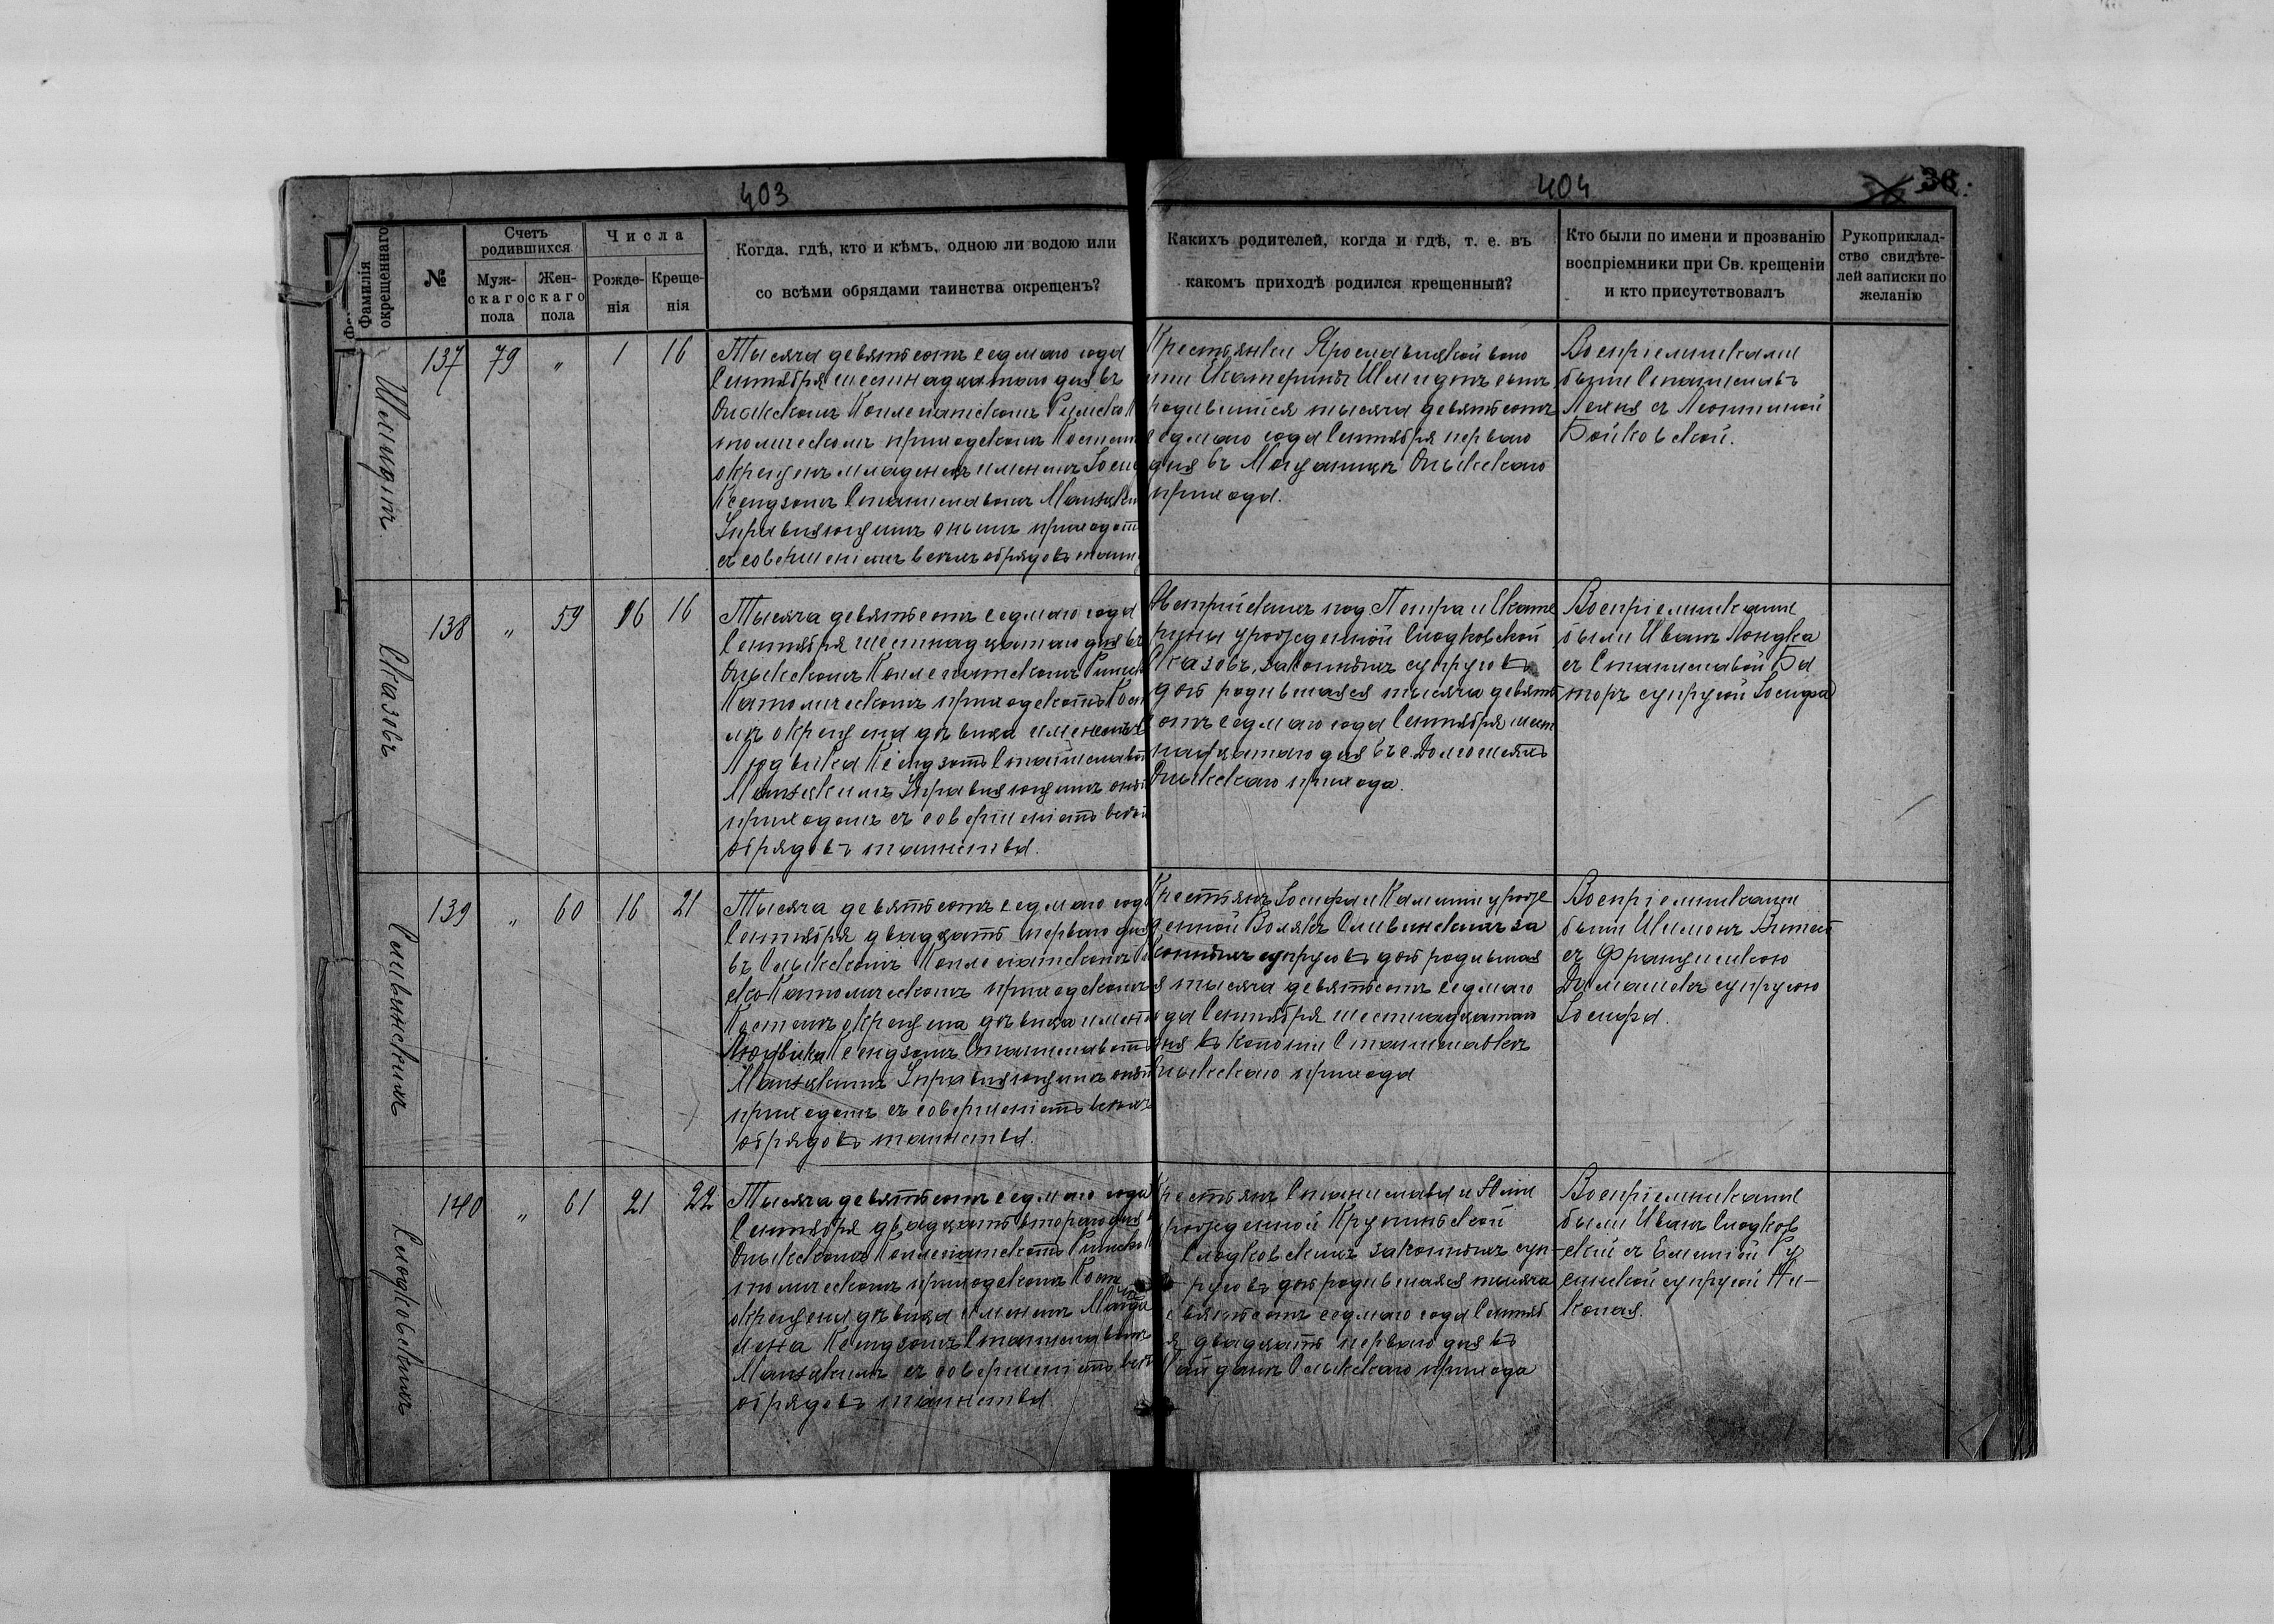 403
404
36
Фамилія окрещеннаго.
№
Счетъ родившихся
Муж-
скаго
пола
Жен-
скаго
пола
Числа
Рожде-
нія
Креще-
нія
Когда, гдѣ, кто и кѣмъ, одною ли водою или
со всѣми обрядами таинства окрещенъ?
Какихъ родителей, когда и гдѣ, т. е. въ
какомъ приходѣ родился крещенный?
Кто были по имени и прозванію
воспріемники при Св. крещеніи
и кто присутствовалъ
Рукоприклад-
ство свидѣте-
лей записки по
желанію
Шмидтъ.
137 79 " 1 16
Тысяча девятьсотъ седьмаго года
Сентября шестнадцатаго дня въ
Олыкскомъ Коллегіатскомъ Римско К
толическомъ приходскомъ Костел
окрещенъ младенецъ именемъ Іоси
Ксендзомъ Станиславомъ
Управляющимъ онымъ приходомъ
съ совершеніемъ всѣхъ обрядовъ таин
Крестьянки Ярославицкой воло
сти Екатерины Шмидтъ сынъ
родившійся тысяча девятьсотъ
седьмаго года Сентября перваго
дня въ Олыкскаго
прихода.
Воспріемниками
были Станиславъ
съ Леонтиной
Бойковской.
Сказовъ
138 " 59 16 16
Тысяча девятьсотъ седьмаго года
Сентября шестнадцатаго дня въ
Олыкскомъ Коллегіатскомъ Римск
Католическомъ приходскомъ Кост
лѣ окрещена дѣвица именемъ
Людвика Ксендзомъ Станиславом
Управляющимъ оны
приходомъ съ совершеніемъ всѣхъ
обрядовъ таинства.
Австрійскихъ под. Петра и Екате
рины урожденной Сладковской
Сказовъ, законныхъ супруговъ
дочь родившаяся тысяча девять
сотъ седьмаго года Сентября шест
надцатаго дня въ с.
Олыкскаго прихода.
Воспріемниками
были Иванъ Лондка
съ Станиславой Ба
торъ супругой Іосифа
Сливинскихъ
139 " 60 16 21
Тысяча девятьсотъ седьмаго года
Сентября двадцать перваго дня
въ Олыкскомъ Коллегіатскомъ Р
ско-Католическомъ приходскомъ
Костелѣ окрещена дѣвица имене
Людвика Ксендзомъ Станиславомъ
Управляющимъ оным
приходомъ съ совершеніемъ всѣхъ
обрядовъ таинства.
Крестьянъ Іосифа и Камиліи урож
денной Волякъ Сливинскихъ за
конныхъ супруговъ дочь родившая
ся тысяча девятьсотъ седьмаго
года Сентября шестнадцатаго
дня въ колоніи Станиславкѣ
Олыкскаго прихода
Воспріемниками
были Шимонъ
съ Францишкою
супругою
Іосифа.
Сладковскихъ
140 " 61 21 22
Тысяча девятьсотъ седьмаго года
Сентября двадцать втораго дня в
Олыкскомъ Коллегіатскомъ Римско К
толическомъ приходскомъ Костелѣ
окрещена дѣвица именемъ Магда
лена Ксендзомъ Станиславомъ
съ совершеніемъ всѣх
обрядовъ таинства
Крестьянъ Станислава и Юліи
урожденной Крупинской
Сладковскихъ законныхъ суп-
руговъ дочь родившаяся тысяча
девятьсотъ седьмаго года Сентяб
ря двадцать перваго дня въ
Олыкскаго прихода
Воспріемниками
были Иванъ Сладков
скій съ Емиліей
супругой Ни-
колая.